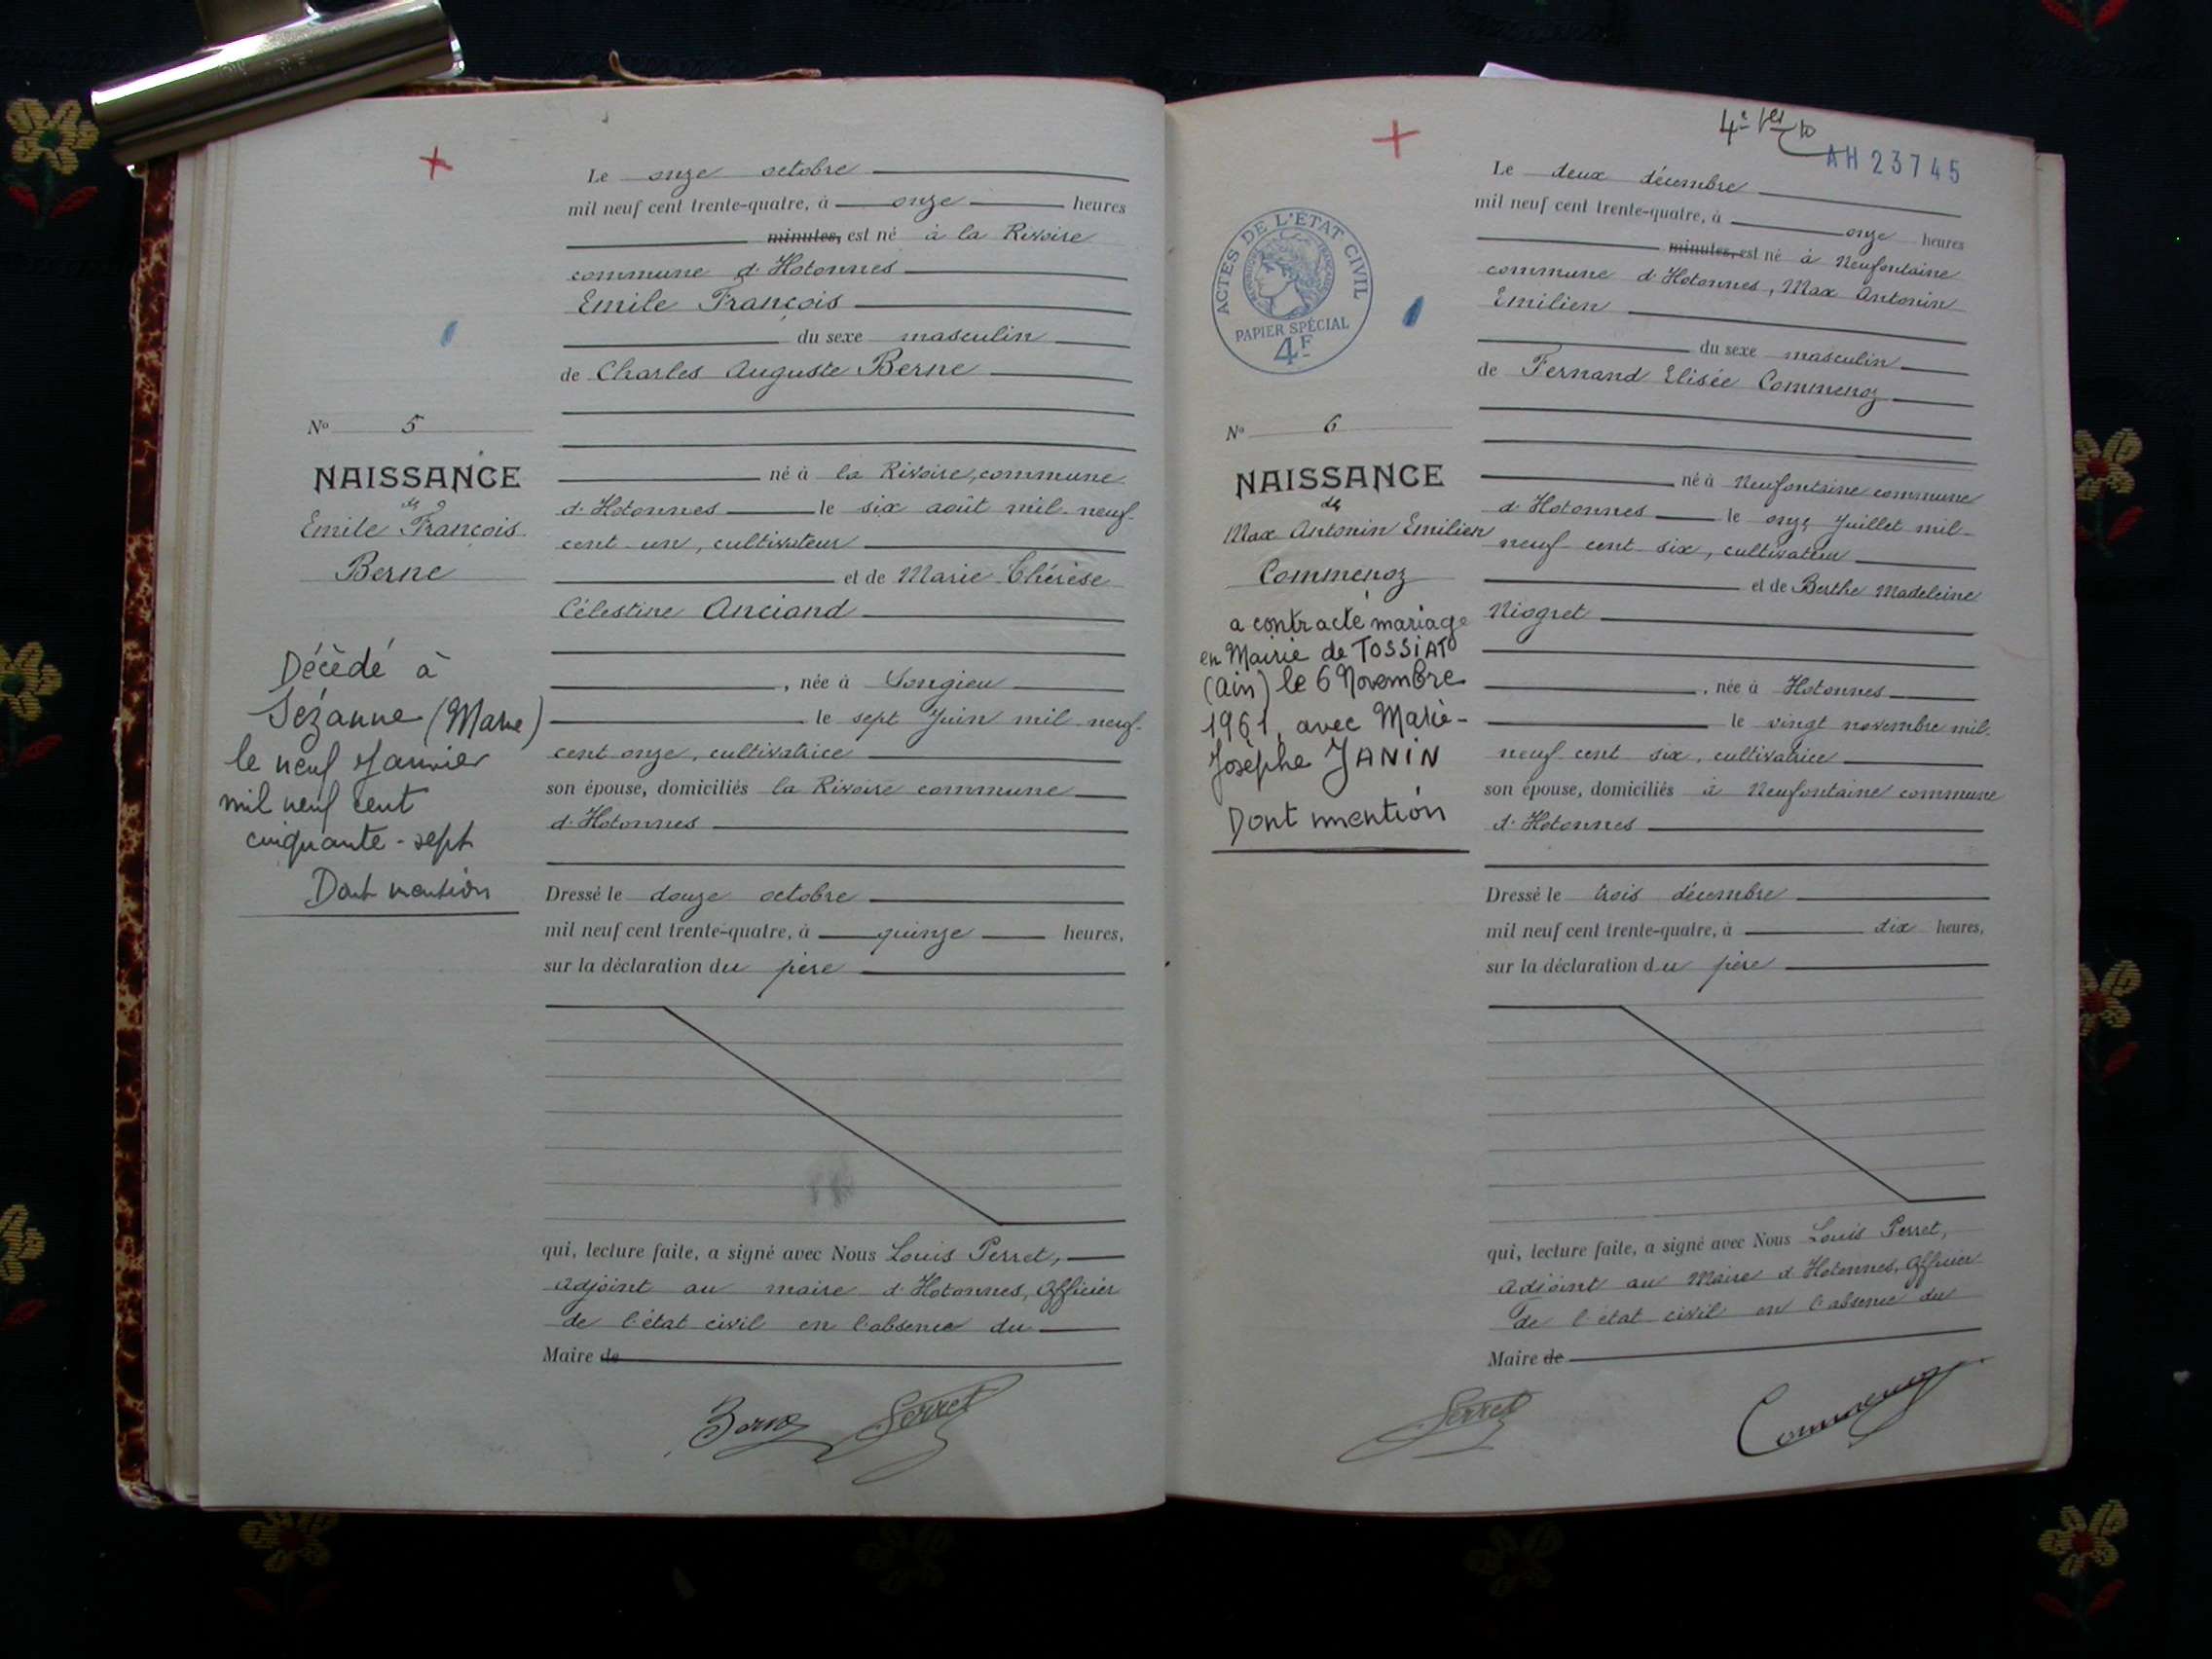 Le onze octobre
mil neuf cent trente-quatre, à onze heures
minutes, est né à la Rivoire
commune d'Hotonnes
Emile François
du sexe masculin
de Charles Auguste Berne
N° 5
NAISSANCE
de
Emile François
Berne
né à la Rivoire, commune
d'Hotonnes le six août mil neuf
cent un, cultivateur
et de Marie Thérèse
Célestine Anciand
Décèdé à
Sézanne (Marne)
le neuf Janvier
mil neuf cent
cinquante-sept
Dont mention
, née à Songieu
le sept Juin mil neuf
cent onze, cultivatrice
son épouse, domiciliés la Rivoire commune
d'Hotonnes
Dressé le douze octobre
mil neuf cent trente-quatre, à quinze heures,
sur la déclaration du père
qui, lecture faite, a signé avec Nous Louis Perret,
adjoint au maire d'Hotonnes, Officier
de l'état civil en l'absence du
Maire de
Berne Perret
AH 23745
Le deux décembre
mil neuf cent trente-quatre, à onze heures
minutes, est né à Neufontaine
commune d'Hotonnes, Max Antonin
Emilien
du sexe masculin
de Fernand Elisée Commenoz
ACTES DE L'ÉTAT CIVIL
PAPIER SPÉCIAL
4F
N° 6
NAISSANCE
de
Max Antonin Emilien
Commenoz
a contracté mariage
en Mairie de TOSSIAT
(Ain) le 6 Novembre
1961, avec Marie-
Josèphe JANIN
Dont mention
né à Neufontaine commune
d'Hotonnes le onze Juillet mil
neuf cent six, cultivateur
et de Berthe Madeleine
Niogret
, née à Hotonnes
le vingt novembre mil
neuf cent six, cultivatrice
son épouse, domiciliés à Neufontaine commune
d'Hotonnes
Dressé le trois décembre
mil neuf cent trente-quatre, à dix heures,
sur la déclaration du père
qui, lecture faite, a signé avec Nous Louis Perret,
adjoint au Maire d'Hotonnes, Officier
de l'état civil en l'absence du
Maire de
Perret Commenoz